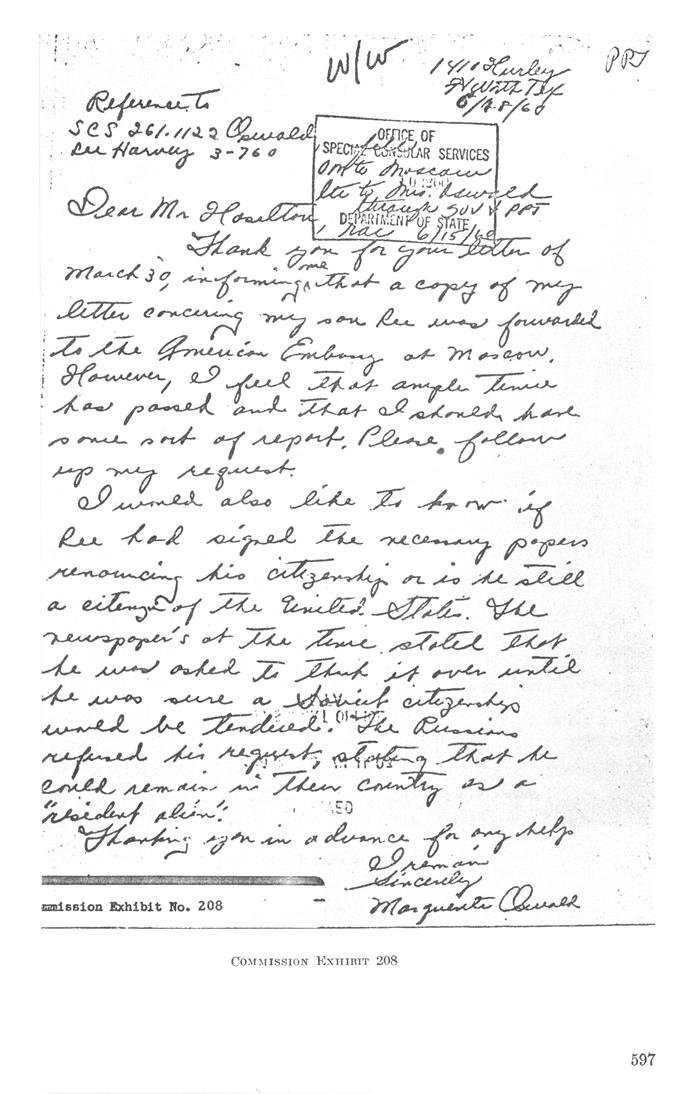 W/W
PPT
1410 Hurley
Ft Worth Tex
Reference to
SCS 261.1122 Oswald
Lee Harvey 3-760
OFFICE OF
SPECIAL CONSULAR SERVICES
om to Moscow
ltr to Mrs. Oswald
through GOV & PPT
DEPARTMENT OF STATE
6/15/60
Dear Mr Haselton,
Thank you for your letter of
March 30, informing me that a copy of my
letter concering my son Lee was forwarded
to the American Embassy at Moscow.
However, I feel that ample time
has passed and that I should have
some sort of report. Please follow
up my request.
I would also like to know if
Lee had signed the necessary papers
renouncing his citizenship or is he still
a citenze of the United States. The
newspaper's at the time stated that
he was asked to think it over until
he was sure a Soviet citizenship
would be tendered. The Russians
refused his request, stating that he
could remain in their country as a
"resident alien".
Thanking you in advance for any help
I remain
Sincerely
Marguerite Oswald
mmission Exhibit No. 208
COMMISSION EXHIBIT 208
597